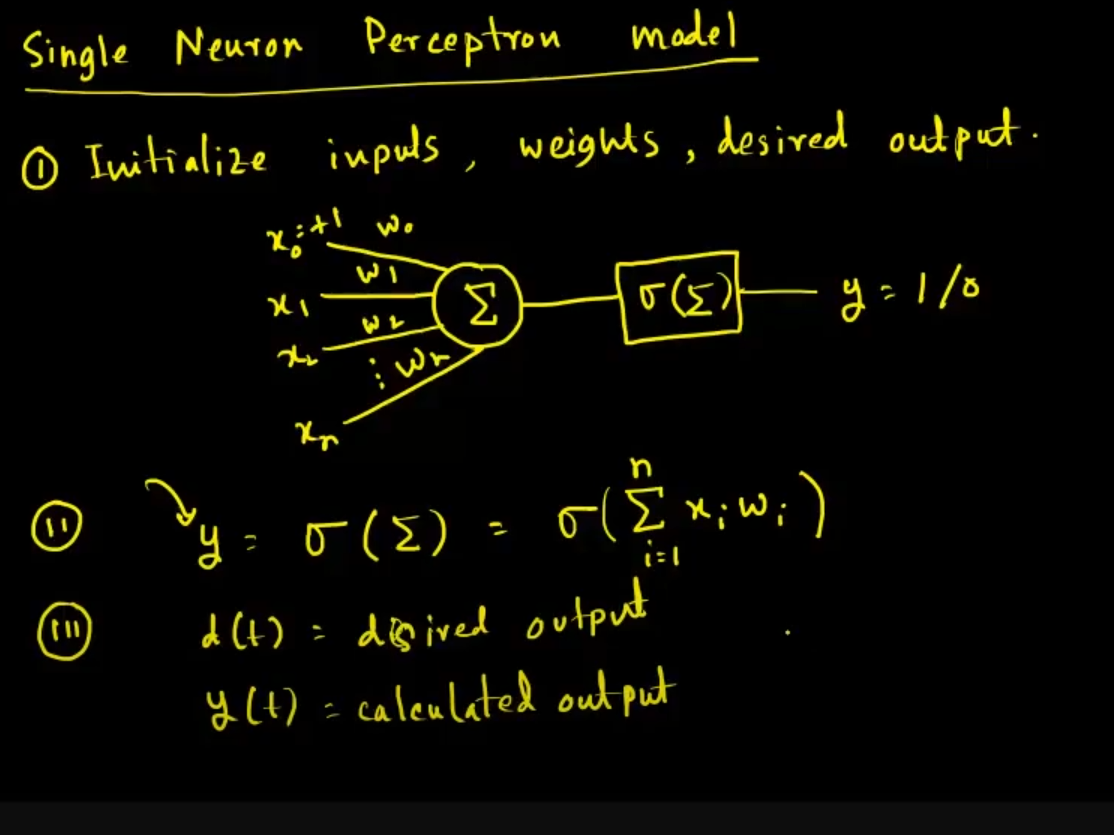 Single Neuron Perceptron model
① Initialize inputs, weights, desired output.
x₀=+1 w₀
x₁ w₁
x₂ w₂
⋮ wₙ
xₙ
Σ σ(Σ) y = 1/0
(II) y = σ(Σ) = σ(∑ⁿᵢ₌₁ xᵢwᵢ)
(III) d(t) = desired output
y(t) = calculated output